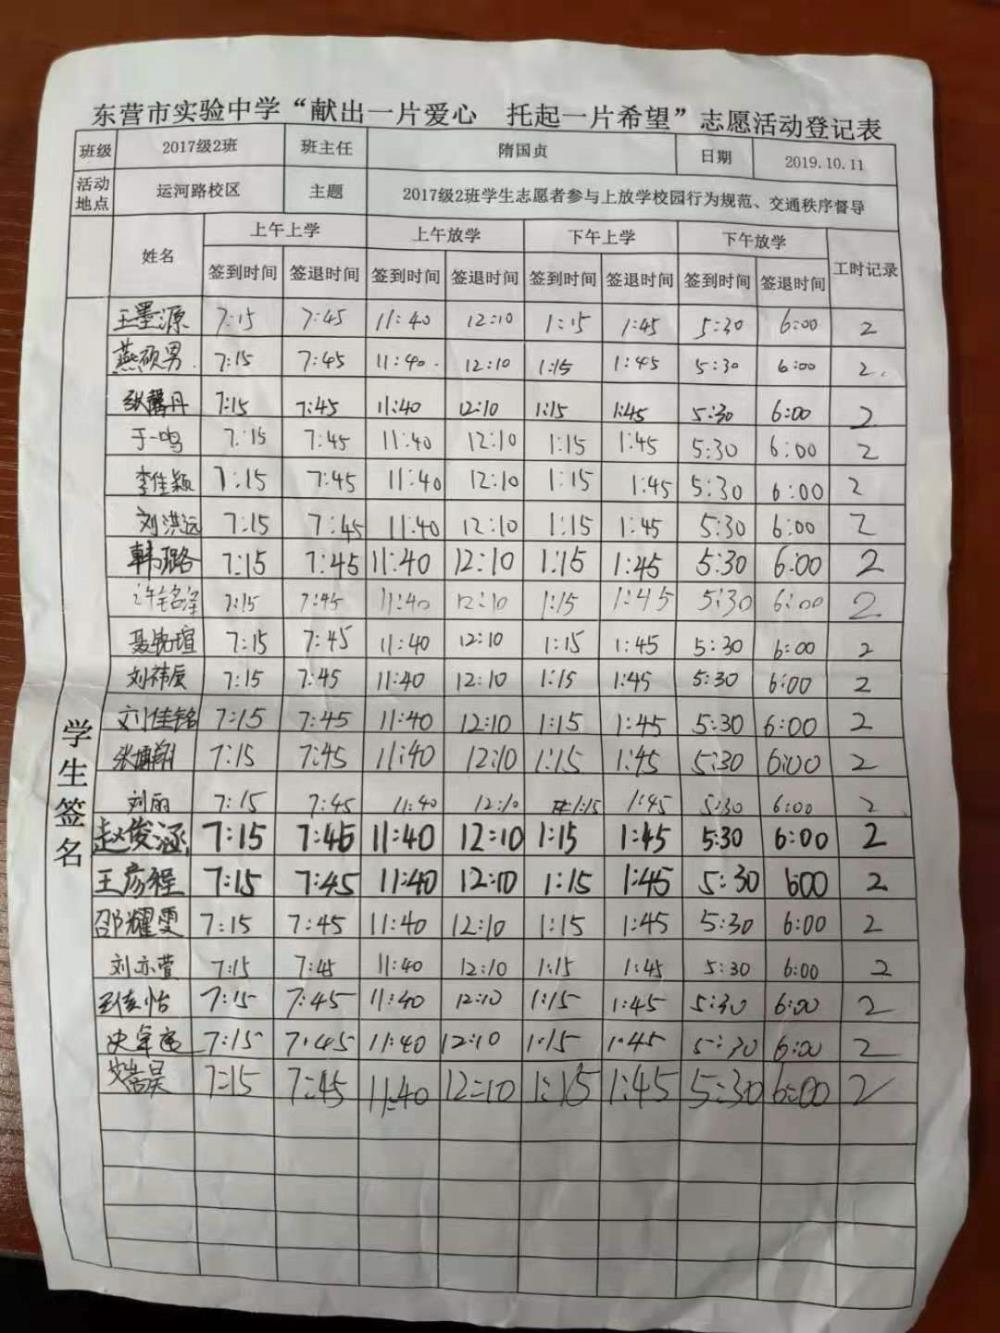 东营市实验中学“献出一片爱心 托起一片希望”志愿活动登记表
班级 2017级2班 班主任 隋国贞 日期 2019.10.11
活动地点 运河路校区 主题 2017级2班学生志愿者参与上放学校园行为规范、交通秩序督导
姓名 上午上学 上午放学 下午上学 下午放学 工时记录
签到时间 签退时间 签到时间 签退时间 签到时间 签退时间 签到时间 签退时间
学生签名
王墨源 7:15 7:45 11:40 12:10 1:15 1:45 5:30 6:00 2
燕硕男 7:15 7:45 11:40 12:10 1:15 1:45 5:30 6:00 2
张馨丹 7:15 7:45 11:40 12:10 1:15 1:45 5:30 6:00 2
于一鸣 7:15 7:45 11:40 12:10 1:15 1:45 5:30 6:00 2
李佳颖 7:15 7:45 11:40 12:10 1:15 1:45 5:30 6:00 2
刘洪远 7:15 7:45 11:40 12:10 1:15 1:45 5:30 6:00 2
韩璐 7:15 7:45 11:40 12:10 1:15 1:45 5:30 6:00 2
7:15 7:45 11:40 12:10 1:15 1:45 5:30 6:00 2
聂铭瑄 7:15 7:45 11:40 12:10 1:15 1:45 5:30 6:00 2
刘祎辰 7:15 7:45 11:40 12:10 1:15 1:45 5:30 6:00 2
刘佳铭 7:15 7:45 11:40 12:10 1:15 1:45 5:30 6:00 2
张博翔 7:15 7:45 11:40 12:10 1:15 1:45 5:30 6:00 2
刘丽 7:15 7:45 11:40 12:10 1:15 1:45 5:30 6:00 2
赵俊涵 7:15 7:45 11:40 12:10 1:15 1:45 5:30 6:00 2
王彦程 7:15 7:45 11:40 12:10 1:15 1:45 5:30 600 2
邵耀雯 7:15 7:45 11:40 12:10 1:15 1:45 5:30 6:00 2
刘亦萱 7:15 7:45 11:40 12:10 1:15 1:45 5:30 6:00 2
7:15 7:45 11:40 12:10 1:15 1:45 5:30 6:00 2
7:15 7:45 11:40 12:10 1:15 1:45 5:30 6:00 2
7:15 7:45 11:40 12:10 1:15 1:45 5:30 6:00 2